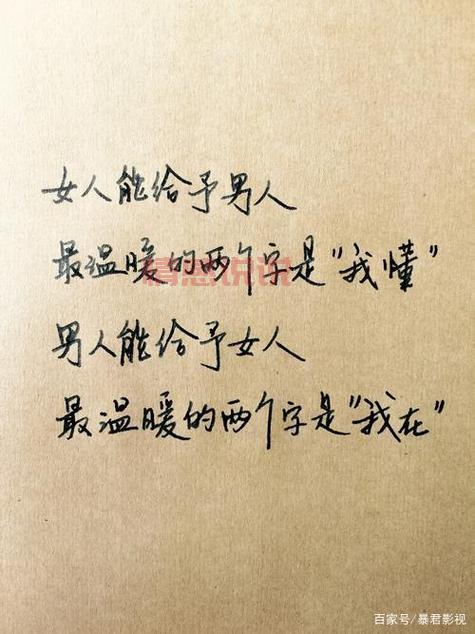 女人能给予男人
最温暖的两个字是"我懂"
情感说说
男人能给予女人
最温暖的两个字是"我在"
百家号/暴君影视